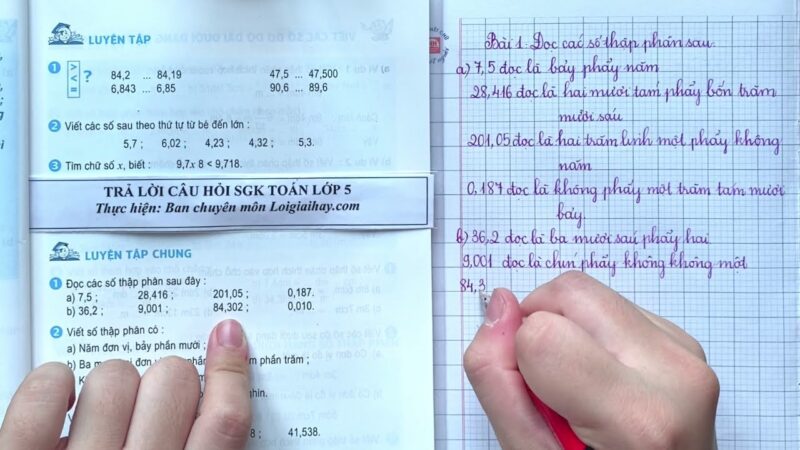 LUYỆN TẬP
1 > < = ? 84,2 ... 84,19 47,5 ... 47,500
6,843 ... 6,85 90,6 ... 89,6
2 Viết các số sau theo thứ tự từ bé đến lớn :
5,7 ; 6,02 ; 4,23 ; 4,32 ; 5,3.
3 Tìm chữ số x, biết : 9,7x 8 < 9,718.
TRẢ LỜI CÂU HỎI SGK TOÁN LỚP 5
Thực hiện: Ban chuyên môn Loigiaihay.com
LUYỆN TẬP CHUNG
1 Đọc các số thập phân sau đây :
a) 7,5 ; 28,416 ; 201,05 ; 0,187.
b) 36,2 ; 9,001 ; 84,302 ; 0,010.
2 Viết số thập phân có :
a) Năm đơn vị, bảy phần mười ;
b) Ba m phần trăm ;
8 ; 41,538.
Bài 1. Đọc các số thập phân sau.
a) 7,5 đọc là bảy phẩy năm
28,416 đọc là hai mươi tám phẩy bốn trăm
mười sáu
201,05 đọc là hai trăm linh một phẩy không
năm
0,187 đọc là không phẩy một trăm tám mươi
bảy.
b) 36,2 đọc là ba mươi sáu phẩy hai
9,001 đọc là chín phẩy không không một
84,3